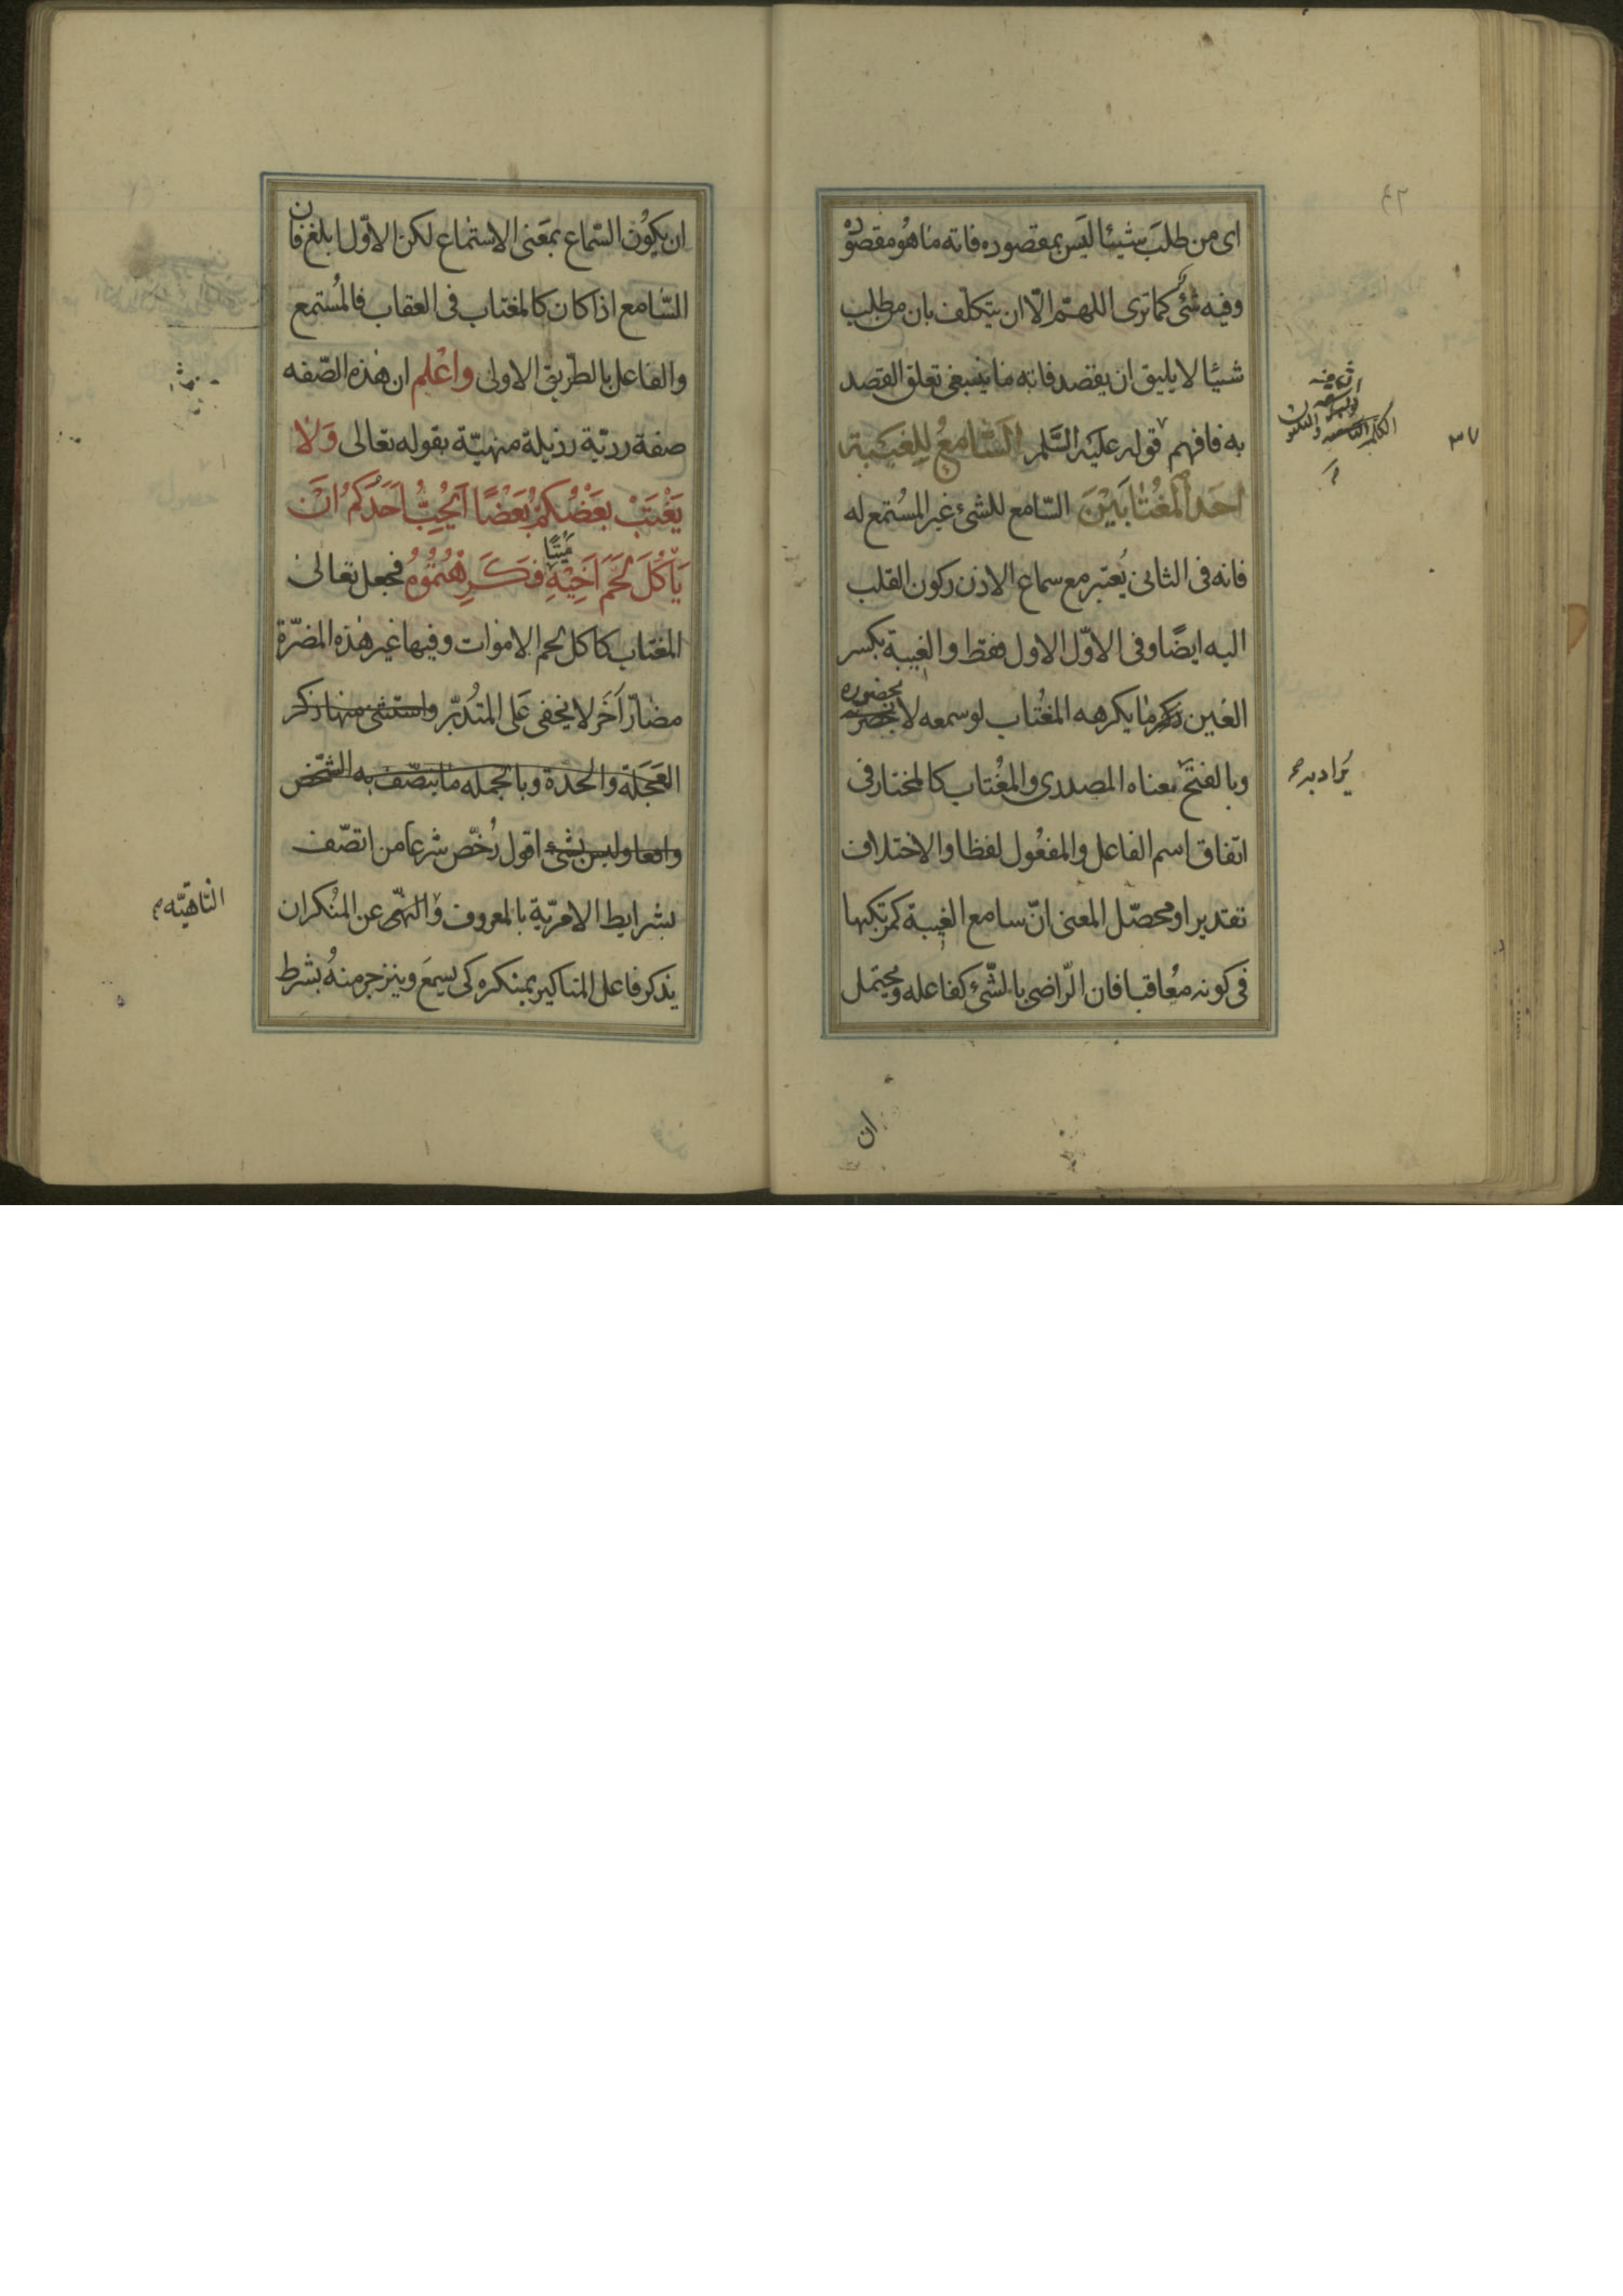 اى من طلب شيئا ليس بمقصوده فاته ما هو مقصوده
وفيه شئ كما ترى اللهمّ الّا ان يتكلّف بان من طلب
شيئا لا يليق ان يقصد فاته ما ينبغى تعلق القصد
به فافهم قوله عليه السّلم السّامعُ لِلغيبَة
٣٧
اَحَد المُغْتابَيْنَ السّامع للشئ غير المُستمع له
فانه فى الثانى يُعتبر مع سماع الاذن ركون القلب
اليه ايضًا وفى الاوّل الاول فقط والغيبة بكسر
الغين ذكر ما يكرهه المغُتاب لو سمعه لا بحضرته
بحضوره
وبالفتح معناه المصدرى والمغُتاب كالمختار فى
يُراد به
اتفاق اسم الفاعل والمفعُول لفظا والاختلاف
تقديرا ومحصّل المعنى انّ سامع الغيبة كمرتكبها
فى كونه معُاقبا فان الرّاضى بالشّئ كفاعله ويحتمل
ان
ان يكوُن السّماع بمعَنى الاستماع لكن الاوّل ابلغ فان
السّامع اذا كان كالمغتاب فى العقاب فالمُستمع
والفاعل بالطّريق الاولى واعْلم ان هذه الصّفه
صفة رديّة رذيلة منهيّة بقوله تعالى وَلا
يَغْتَبْ بعَضُكُمْ بَعْضًا اَيُحِبُّ اَحَدُكُمُ اَنْ
يَاْكُلَ لَحْمَ اَخِيْهِ مَيْتًا فَكَرِهْتُمُوُهُ فجعل تعالى
المغتاب كاكل لحم الاموات وفيها غير هذه المضرّة
مضارّ اَخَر لا يخفى عَلى المتُدبّر واستثنى منها ذكر
العَجَلَة والحدّة وبالجمله ما يتصّف به الشّخص
واقعا وليس بشئ اقول رُخّص شرعا من اتصّف
بشرايط الامريّة بالمعروف والنّهى عن المنُكر ان
النّاهيّه
يذكر فاعل المناكير بمنكره كى يسمعَ وينزجر منهُ بشرط